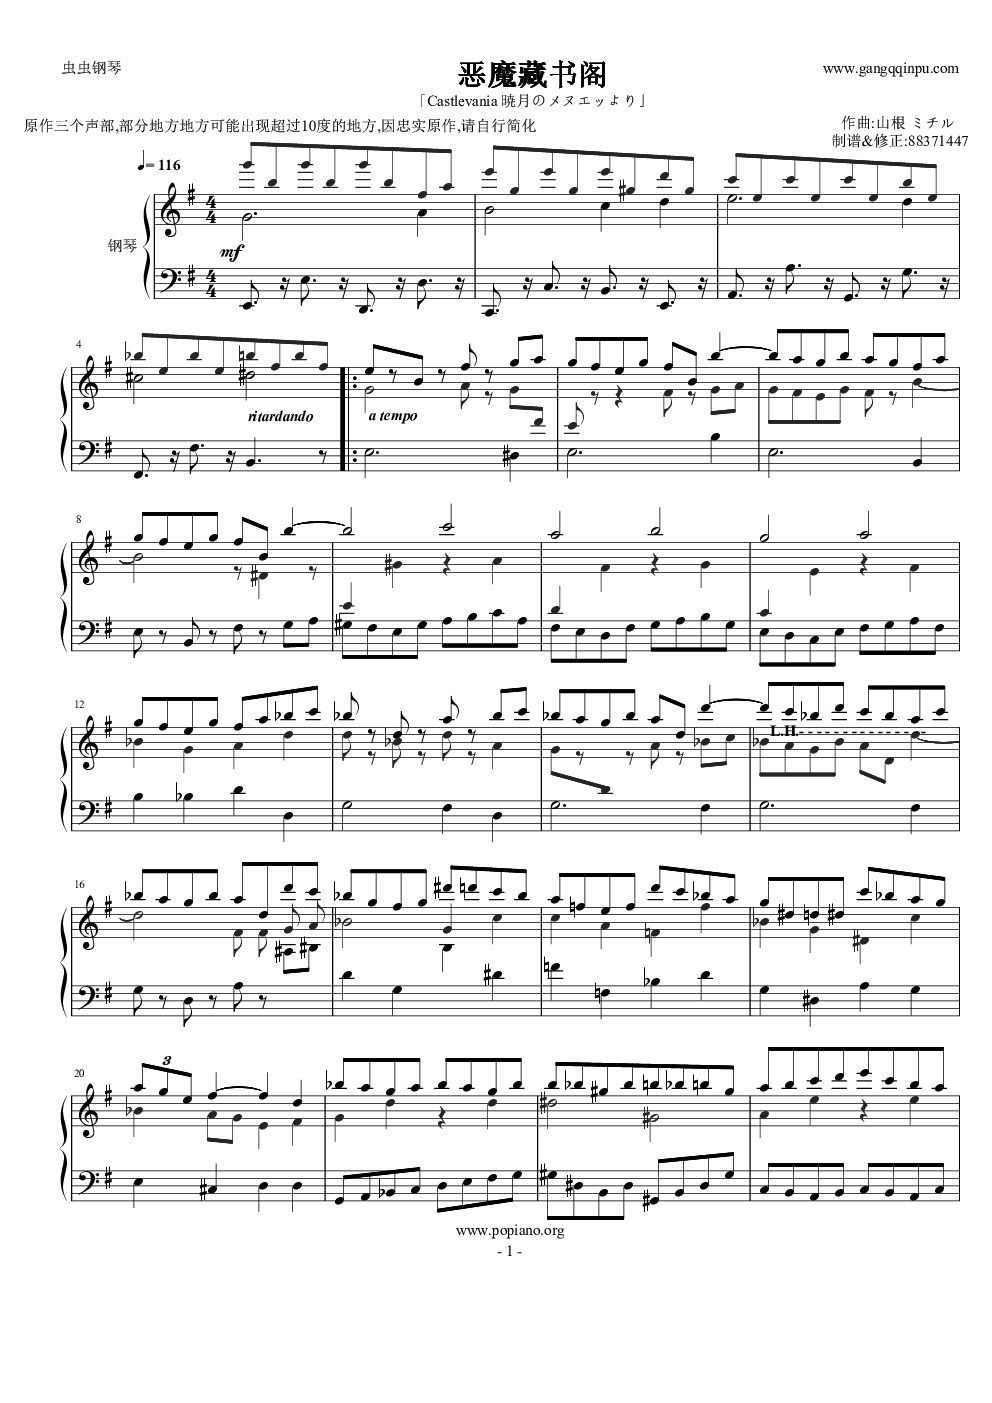 虫虫钢琴
恶魔藏书阁
www.gangqqinpu.com
「Castlevania 暁月のメヌエッより」
原作三个声部,部分地方地方可能出现超过10度的地方,因忠实原作,请自行简化
作曲:山根 ミチル
制谱&修正:88371447
= 116
钢琴
4
4
mf
4
4
4
ritardando
a tempo
8
12
L.H.
16
20
3
www.popiano.org
- 1 -